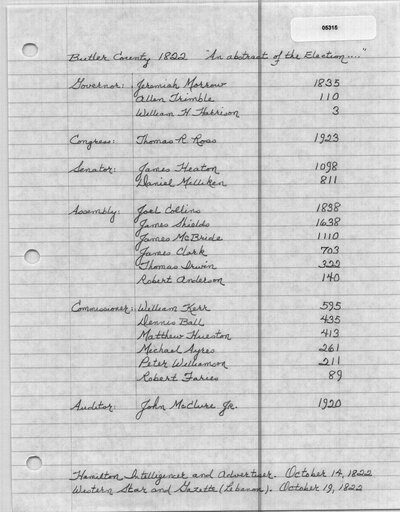 05315
Butler County 1822 "An abstract of the Election...."
Governor: Jeremiah Morrow 1835
Allen Trimble 110
William H Harrison 3
Congress: Thomas R. Ross 1923
Senator: James Heaton 1098
Daniel Milliken 811
Assembly: Joel Collins 1838
James Shields 1638
James McBride 1110
James Clark 703
Thomas Irwin 322
Robert Anderson 140
Commissioner: William Kerr 595
Dennis Ball 435
Matthew Hueston 413
Michael Ayres 261
Peter Williamson 211
Robert Faries 89
Auditor: John McClure Jr. 1920
Hamilton Intelligencer and Advertiser. October 14, 1822
Western Star and Gazette (Lebanon). October 19, 1822